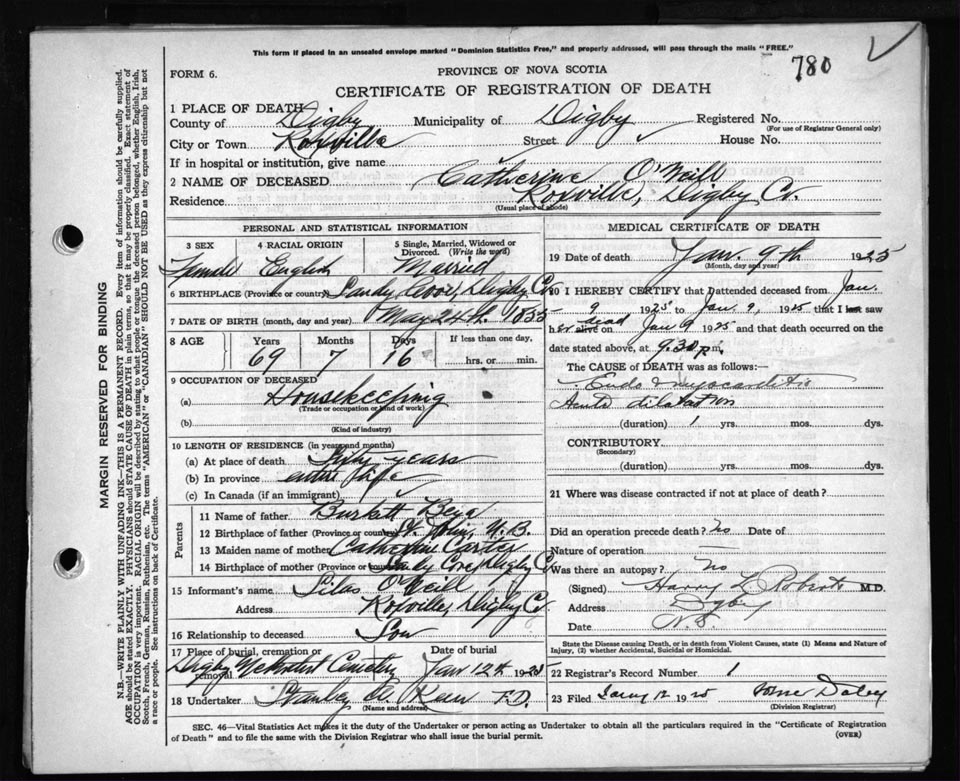 This form if placed in an unsealed envelope marked "Dominion Statistics Free," and properly addressed, will pass through the mails "FREE."
780
FORM 6.
PROVINCE OF NOVA SCOTIA
CERTIFICATE OF REGISTRATION OF DEATH
1 PLACE OF DEATH
County of Digby Municipality of Digby Registered No.
(For use of Registrar General only)
City or Town Roxville Street House No.
If in hospital or institution, give name
2 NAME OF DECEASED Catherine O'Neill
Residence Roxville, Digby Co.
(Usual place of abode)
PERSONAL AND STATISTICAL INFORMATION
3 SEX 4 RACIAL ORIGIN 5 Single, Married, Widowed or Divorced. (Write the word)
Female English Married
6 BIRTHPLACE (Province or country) Sandy Cove, Digby Co.
7 DATE OF BIRTH (month, day and year) May 24th 1855
8 AGE Years Months Days If less than one day,
69 7 16 hrs. or min.
9 OCCUPATION OF DECEASED
(a) Housekeeping
(Trade or occupation or kind of work)
(b)
(Kind of industry)
10 LENGTH OF RESIDENCE (in years and months)
(a) At place of death years
(b) In province entire life
(c) In Canada (if an immigrant)
Parents
11 Name of father Burkett
12 Birthplace of father (Province or country) St. John, N.B.
13 Maiden name of mother Catherine Carter
14 Birthplace of mother (Province or country) Sandy Cove, Digby Co.
15 Informant's name Silas O'Neill
Address Roxville, Digby Co.
16 Relationship to deceased Son
17 Place of burial, cremation or removal Date of burial
Digby Methodist Cemetery Jan 12th 1925
18 Undertaker Stanley F.D.
(Name and address)
MEDICAL CERTIFICATE OF DEATH
19 Date of death Jan. 9th 1925
(Month, day and year)
20 I HEREBY CERTIFY that I attended deceased from Jan.
9 1925 to Jan 9, 1925 that I last saw
her alive dead on Jan 9 1925 and that death occurred on the
date stated above, at 9.30 p.m.
The CAUSE of DEATH was as follows:—
Endo & myocarditis
Acute dilatation
(duration) 1 yrs. mos. dys.
CONTRIBUTORY
(Secondary)
(duration) yrs. mos. dys.
21 Where was disease contracted if not at place of death?
Did an operation precede death? No Date of
Nature of operation
Was there an autopsy? No
(Signed) Harry L Roberts M.D.
Address Digby
Date N.S.
State the Disease causing Death, or in death from Violent Causes, state (1) Means and Nature of Injury, (2) whether Accidental, Suicidal or Homicidal.
22 Registrar's Record Number 1
23 Filed 1925 Daley
(Division Registrar)
SEC. 46—Vital Statistics Act makes it the duty of the Undertaker or person acting as Undertaker to obtain all the particulars required in the "Certificate of Registration
of Death" and to file the same with the Division Registrar who shall issue the burial permit.
(OVER)
MARGIN RESERVED FOR BINDING
N.B.—WRITE PLAINLY WITH UNFADING INK—THIS IS A PERMANENT RECORD. Every item of information should be carefully supplied.
AGE should be stated EXACTLY. PHYSICIANS should STATE CAUSE OF DEATH in plain terms, so that it may be properly classified. Exact statement of
OCCUPATION is very important. RACIAL ORIGIN will be described by stating to what people or tongue the deceased person belonged, whether English, Irish,
Scotch, French, German, Russian, Ruthenian, etc. The terms "AMERICAN" or "CANADIAN" SHOULD NOT BE USED as they express citizenship but not
a race or people. See instructions on back of Certificate.